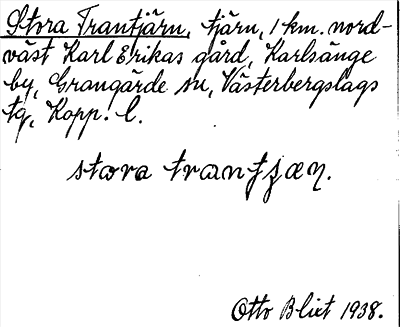 Stora Trantjärn, tjärn, 1 km. nord-
väst Karl Erikas gård, Karlsänge
by, Grangärde sn, Västerbergslags
tg, Kopp. l.
stora trantjæṇ.
Otto Blixt 1938.